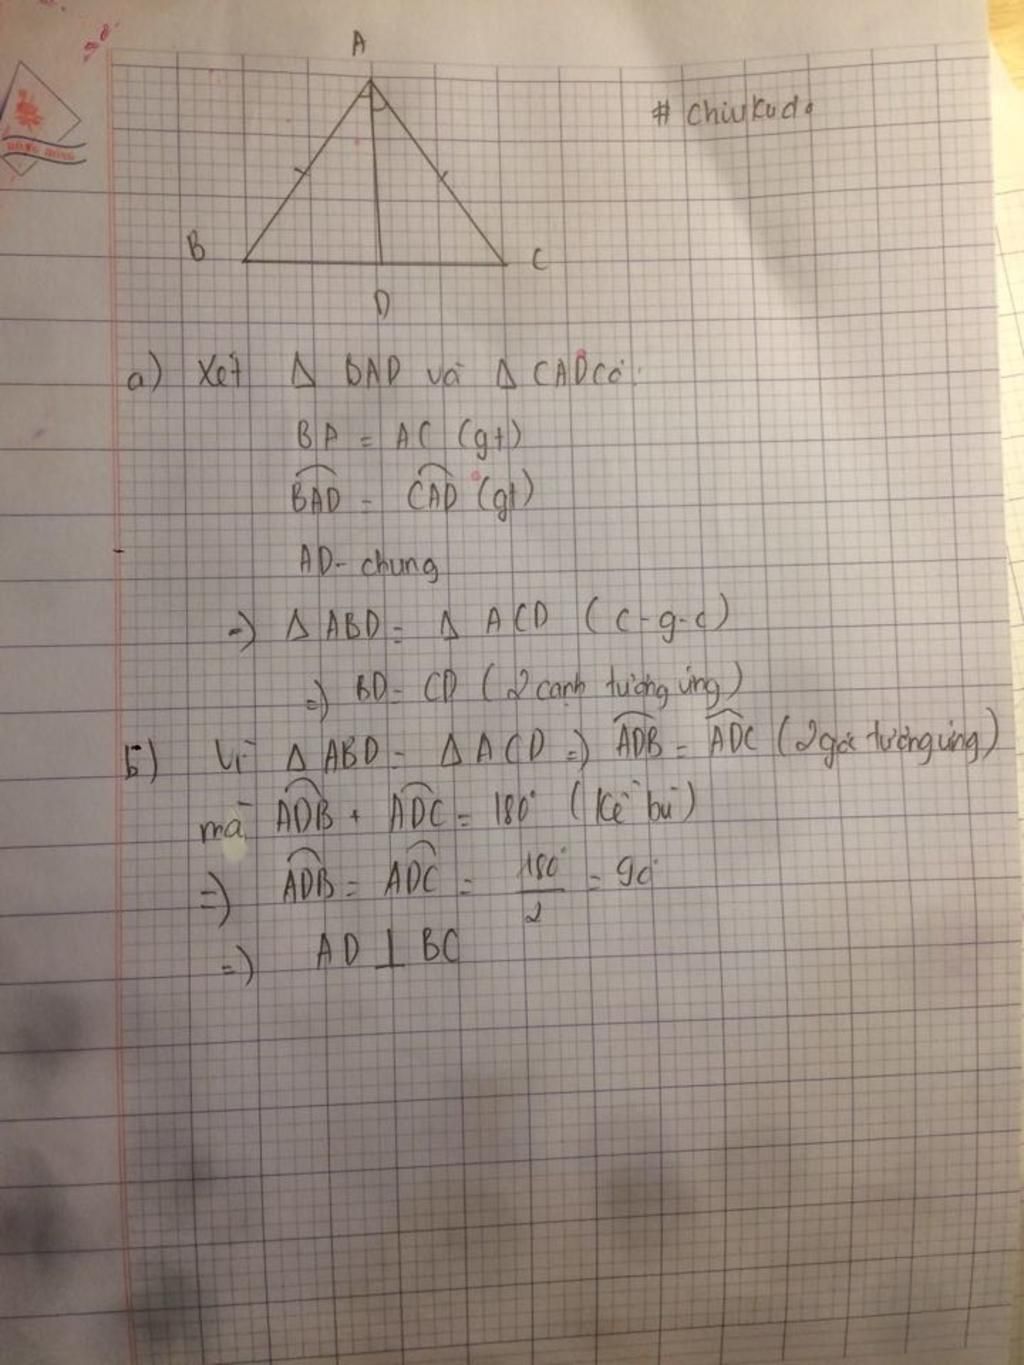 A
# Chiukudo
B
C
D
a) Xét Δ BAD và Δ CAD có:
BA = AC (gt)
BAD = CAD (gt)
AD - chung
=) Δ ABD = Δ ACD (c-g-c)
=) BD = CD (2 cạnh tương ứng)
b) Vì Δ ABD = Δ ACD =) ADB = ADC (2 góc tương ứng)
mà ADB + ADC = 180° (kề bù)
=) ADB = ADC = 180°/2 = 90°
=) AD ⊥ BC